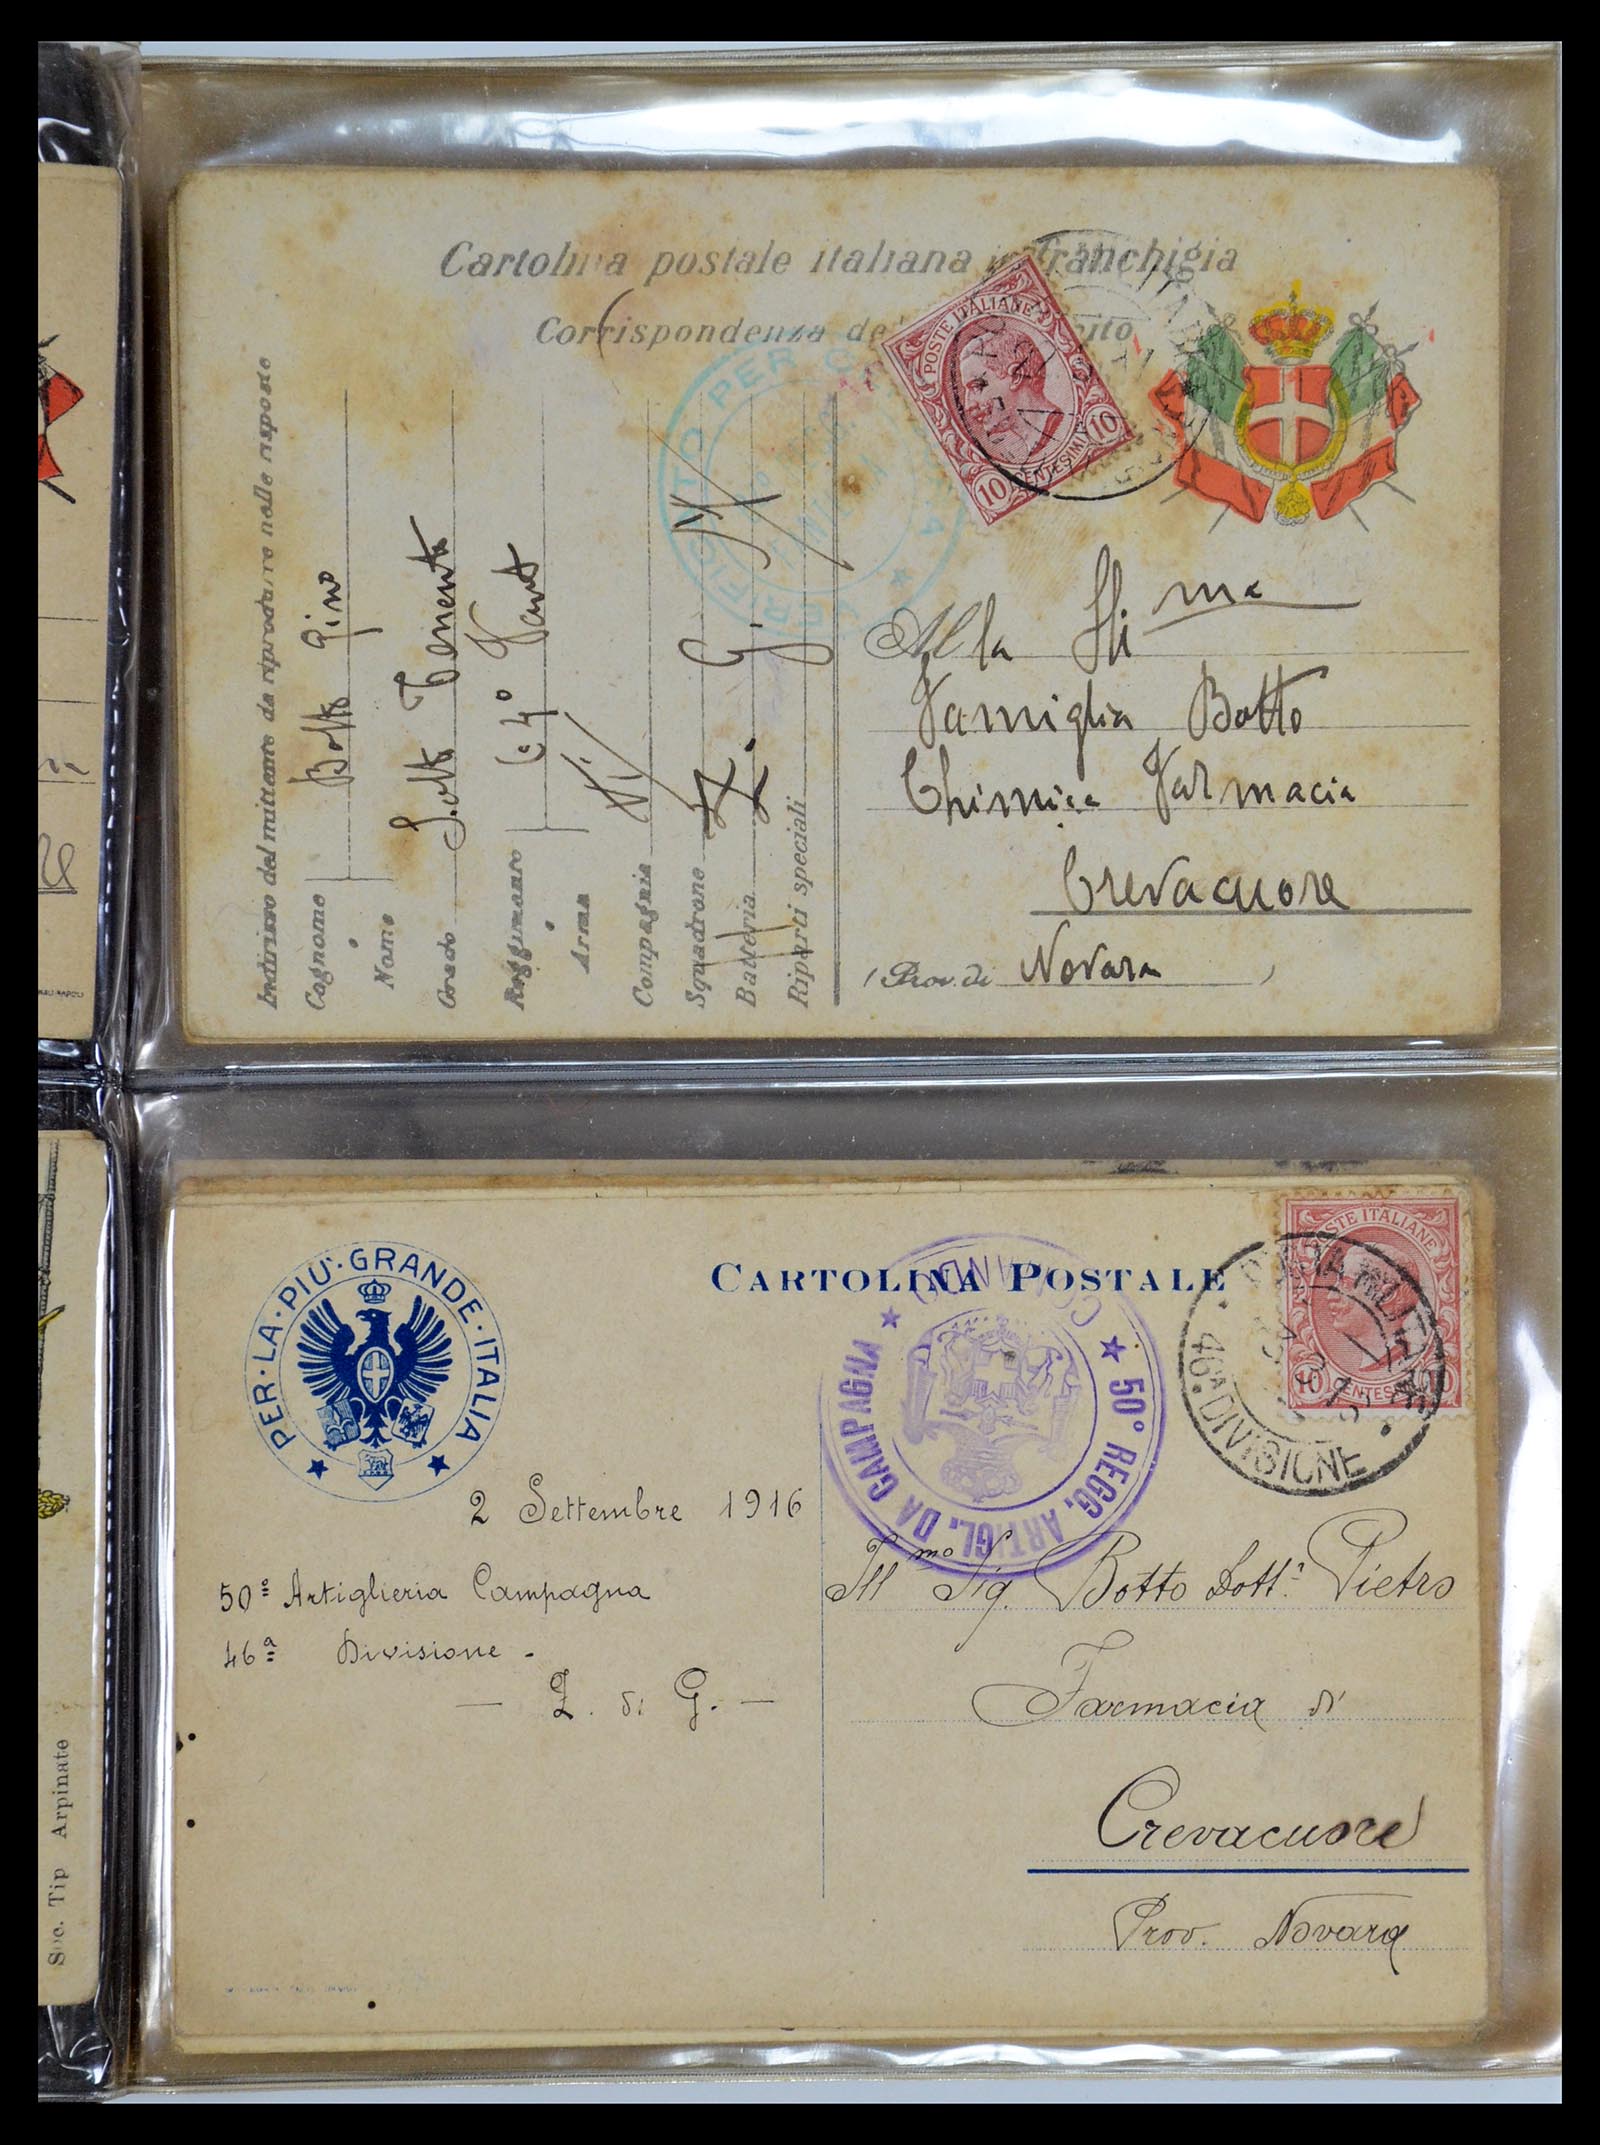 Cartolina postale italiana in franchigia
Corrispondenza del
Indirizzo del mittente da riprodurre nelle risposte
Cognome Botto Gino
Nome
Grado S. otto Tenente
Reggimento 64° Fant
Arma
Compagnia
Squadrone Z.
Batteria
Riparti speciali
G.
VERIFICATO PER C
POSTE ITALIANE
10 CENTESIMI 10
Alla
Famiglia Botto
Chimica Farmacia
Crevacuore
(Prov. di Novara )
PER·LA·PIU'·GRANDE·ITALIA
CARTOLINA POSTALE
COMANDO
50° REGG. ARTIGL. DA CAMPAGNA
POSTE ITALIANE
10 CENTESIMI 10
POSTA MILITARE
46ª DIVISIONE
2 Settembre 1916
50° Artiglieria Campagna
46ª Divisione -
— Z. di G. —
Ill mo Sig. Botto Dott. Pietro
Farmacia di
Crevacuore
Prov. Novara
Soc. Tip Arpinate